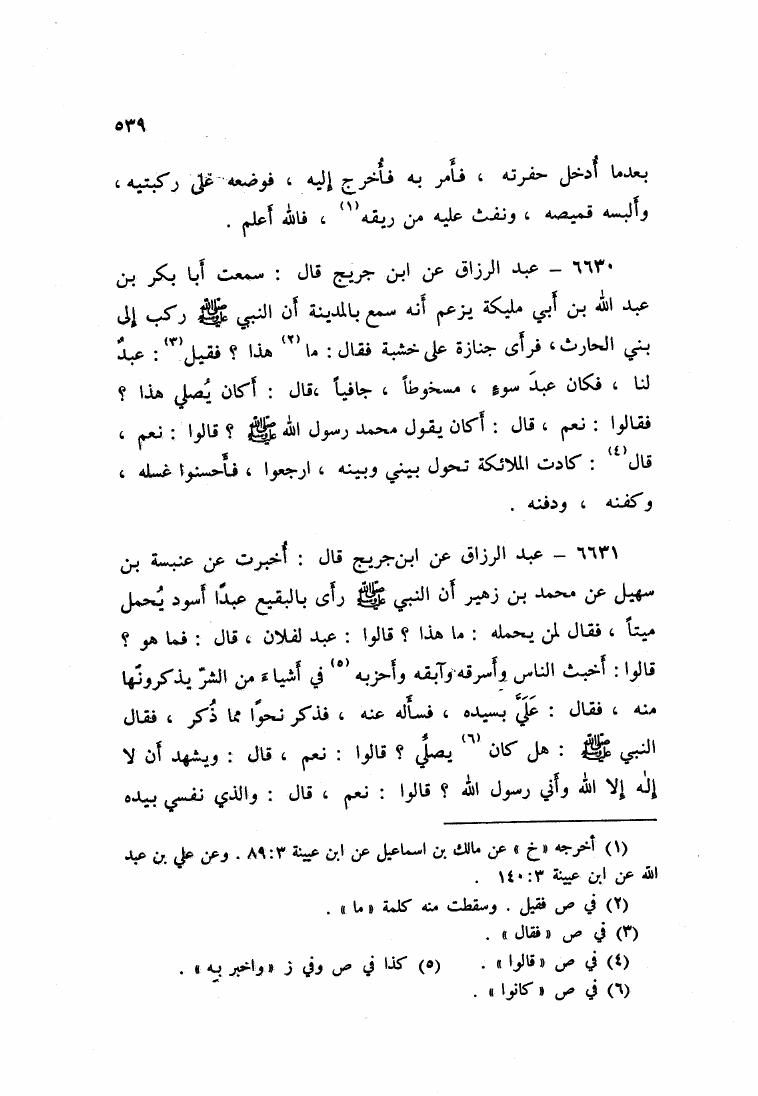 ٥٣٩
بعدما أُدخل حفرته ، فأَمر به فأُخرج إليه ، فوضعه على ركبتيه ،
وأَلبسه قميصه ، ونفث عليه من ريقه(١) ، فالله أَعلم .
٦٦٣٠ – عبد الرزاق عن ابن جريج قال : سمعت أَبا بكر بن
عبد الله بن أَبي مليكة يزعم أَنه سمع بالمدينة أَن النبي ﷺ ركب إلى
بني الحارث، فرأَى جنازة على خشبة فقال : ما(٢) هذا ؟ فقيل(٣) : عبدٌ
لنا ، فكان عبدَ سوءٍ ، مسخوطاً ، جافياً ،قال : أَكان يُصلي هذا ؟
فقالوا : نعم ، قال : أَكان يقول محمد رسول الله ﷺ ؟ قالوا : نعم ،
قال(٤) : كادت الملائكة تحول بيني وبينه ، ارجعوا ، فأَحسنوا غسله ،
وكفنه ، ودفنه .
٦٦٣١ – عبد الرزاق عن ابن جريج قال : أُخبرت عن عنبسة بن
سهيل عن محمد بن زهير أَن النبي ﷺ رأَى بالبقيع عبدًا أَسود يُحمل
ميتاً ، فقال لمن يحمله : ما هذا ؟ قالوا : عبد لفلان ، قال : فما هو ؟
قالوا : أَخبث الناس وأَسرقه وآبقه وأَحزبه(٥) في أَشياءَ من الشرّ يذكرونها
منه ، فقال : عَلَيَّ بسيده ، فسأَله عنه ، فذكر نحوًا مما ذُكر ، فقال
النبي ﷺ : هل كان(٦) يصلِّي ؟ قالوا : نعم ، قال : ويشهد أَن لا
إِلٰه إِلا الله وأَني رسول الله ؟ قالوا : نعم ، قال : والذي نفسي بيده
(١) أخرجه «خ» عن مالك بن اسماعيل عن ابن عيينة ٨٩:٣ . وعن علي بن عبد
الله عن ابن عيينة ١٤٠:٣ .
(٢) في ص فقيل . وسقطت منه كلمة «ما» .
(٣) في ص «فقال» .
(٤) في ص «قالوا» . (٥) كذا في ص وفي ز «واخبر به» .
(٦) في ص «كانوا» .